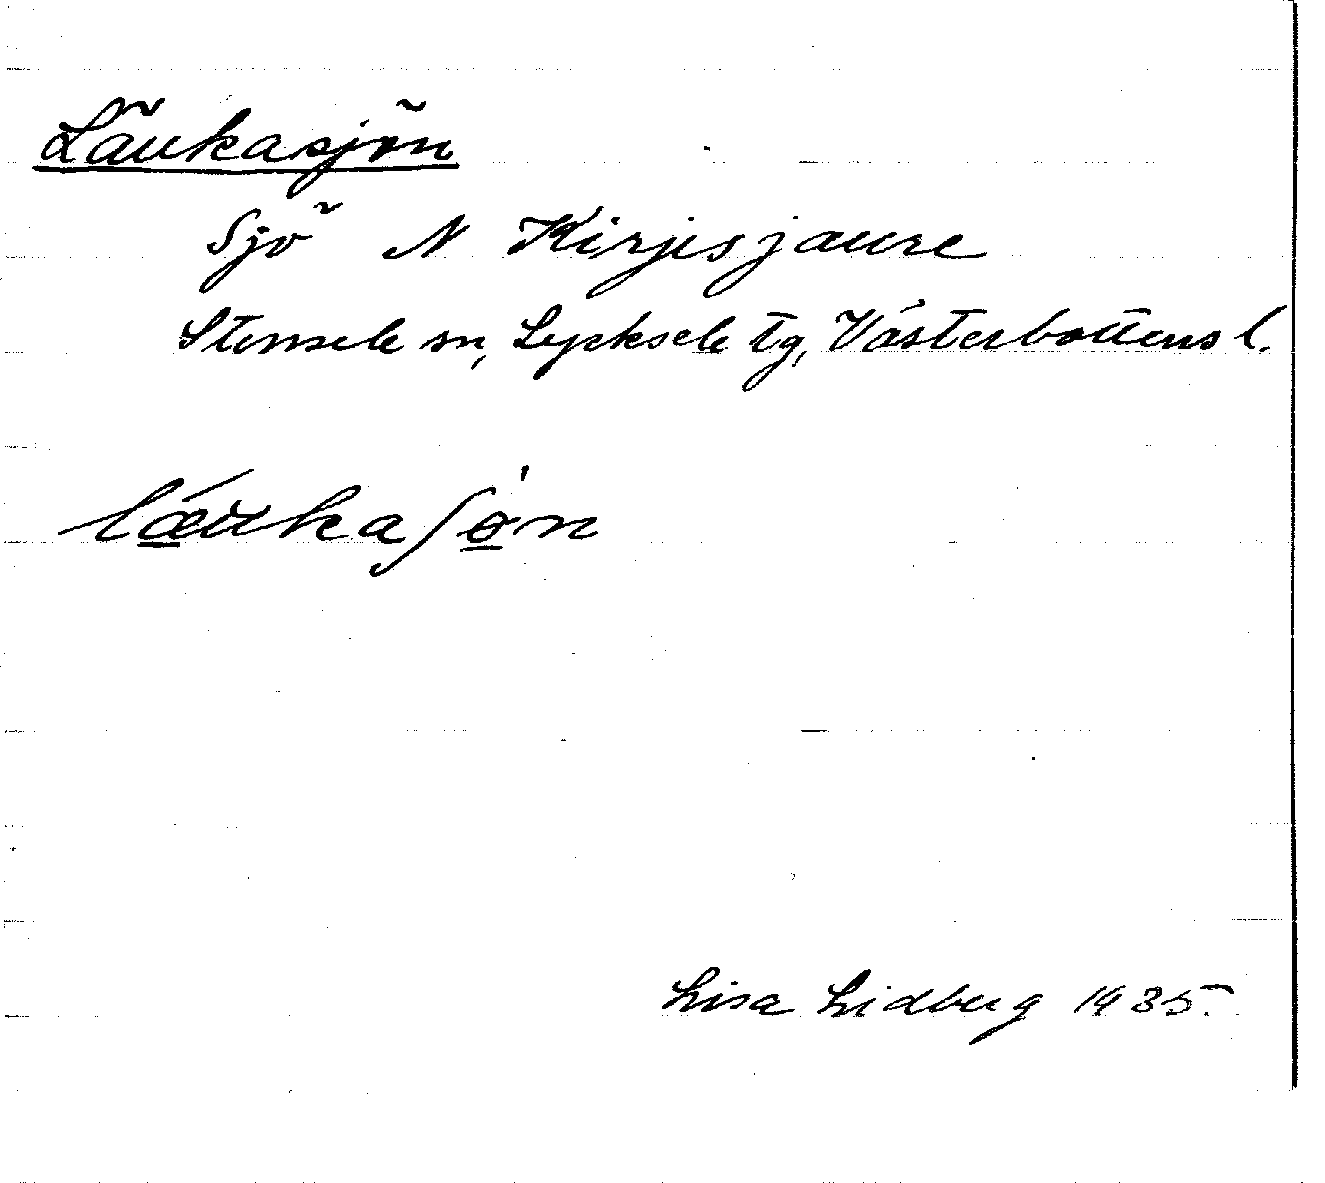 Läukasjön
Sjö N Kirjesjaure
Stensele sn, Lycksele tg, Västerbottens l.
læukaʃø̱n
Lisa Lidberg 1935.